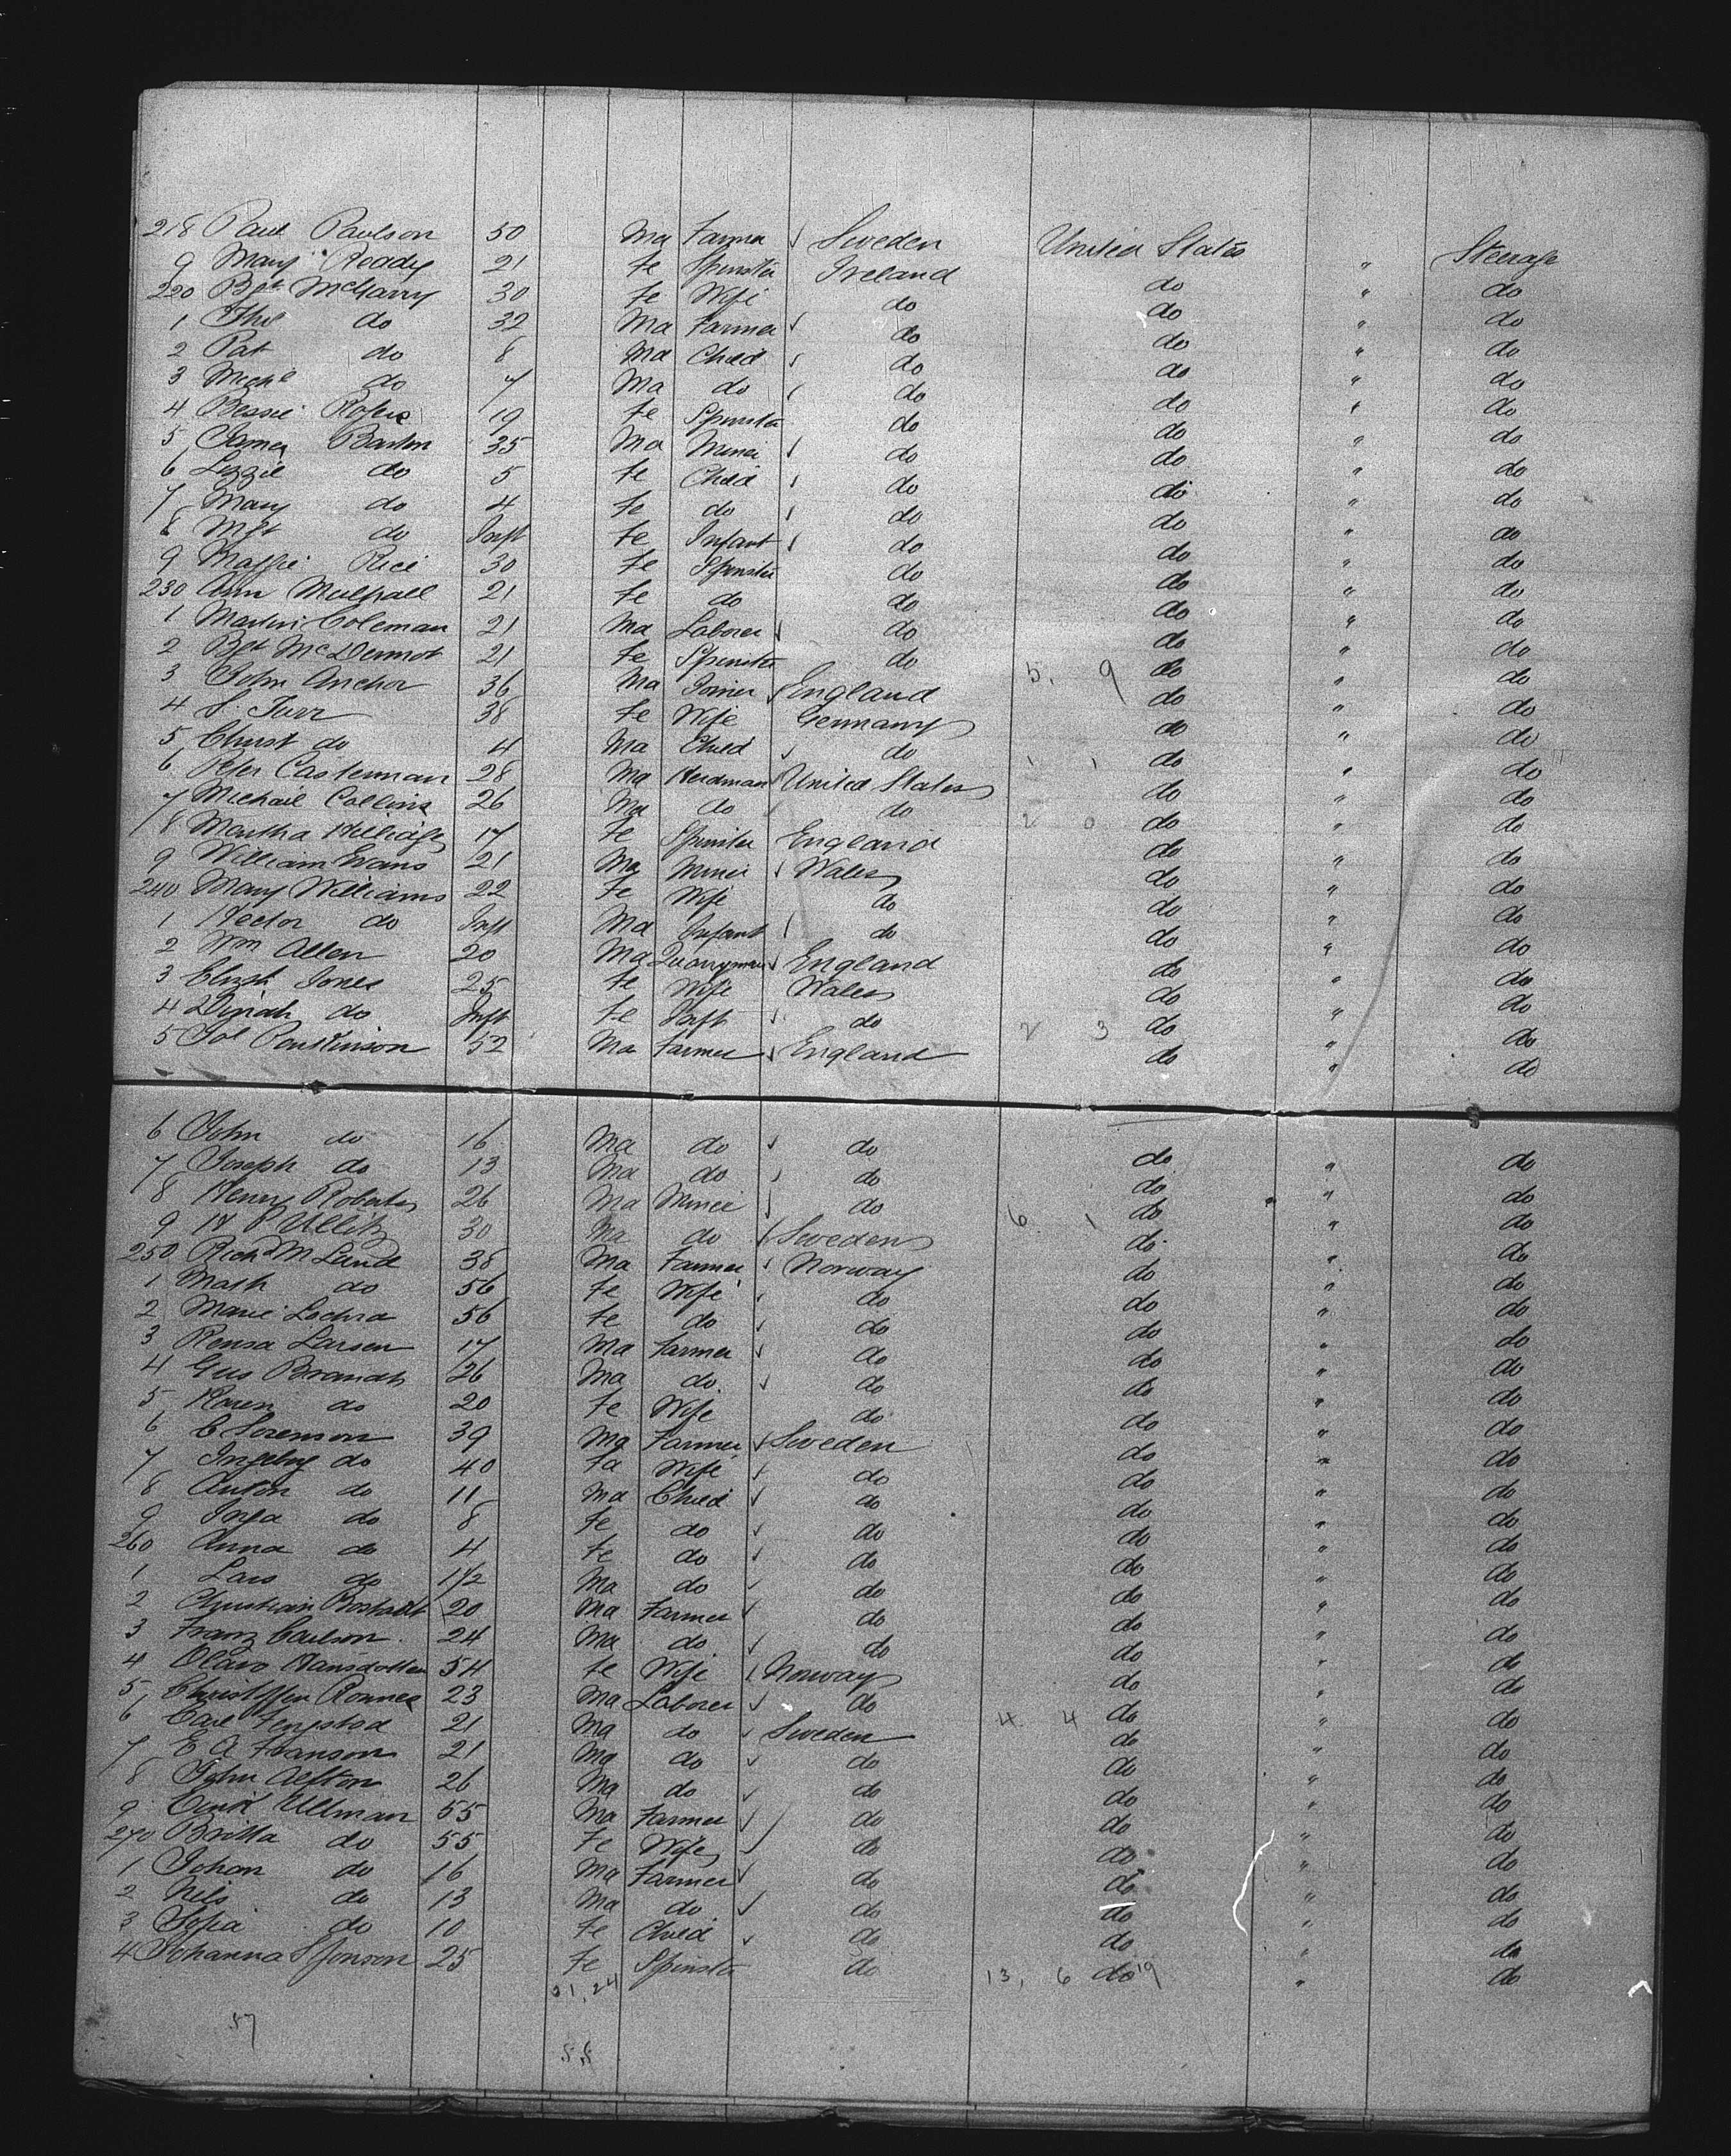 218 Paul Paulson 50 Ma Farmer ✓ Sweden United States " Steerage
9 Mary Ready 21 Fe Spinster Ireland do " do
220 Bgt McGarry 30 Fe Wife do do " do
1 Tho do 32 Ma Farmer ✓ do do " do
2 Pat do 8 Ma Child ✓ do do " do
3 Michl do 7 Ma do ✓ do do " do
4 Bessie Rogers 19 Fe Spinster do do " do
5 James Barton 35 Ma Miner ✓ do do " do
6 Lizzie do 5 Fe Child ✓ do do " do
7 Mary do 4 Fe do ✓ do do " do
8 Mgt do Inft Fe Infant ✓ do do " do
9 Maggie Rice 30 Fe Spinster do do " do
230 Ann Mulhall 21 Fe do do do " do
1 Martin Coleman 21 Ma Laborer ✓ do do " do
2 Bgt McDermot 21 Fe Spinster do 5, 9 do " do
3 John Anchor 36 Ma Joiner ✓ England do " do
4 S. Turr 38 Fe Wife Germany do " do
5 Christ do 4 Ma Child ✓ do 1 1 do " do
6 Peter Casterman 28 Ma Herdman United States do " do
7 Michael Collins 26 Ma do do 2 0 do " do
8 Martha 17 Fe Spinster England do " do
9 William Evans 21 Ma Miner ✓ Wales do " do
240 Mary Williams 22 Fe Wife do do " do
1 Hector do Inft Ma Infant ✓ do do " do
2 Wm Allen 20 Ma Quarryman ✓ England do " do
3 Elizth Jones 25 Fe Wife Wales do " do
4 Dinah do Inft Fe Inft ✓ do 2 3 do " do
5 Jos Parkinson 52 Ma Farmer ✓ England do " do
6 John do 16 Ma do ✓ do do " do
7 Joseph do 13 Ma do ✓ do do " do
8 Henry Roberts 26 Ma Miner ✓ do 6 1 do " do
9 30 Ma do ✓ Sweden do " do
250 Richd M Lund 38 Ma Farmer ✓ Norway do " do
1 Math do 56 Fe Wife ✓ do do " do
2 Marie 56 Fe do ✓ do do " do
3 Larsen 17 Ma Farmer ✓ do do " do
4 Gus Brandt 26 Ma do ✓ do do " do
5 Karen do 20 Fe Wife do do " do
6 C Sorenson 39 Ma Farmer ✓ Sweden do " do
7 Ingeborg do 40 Fa Wife ✓ do do " do
8 Anton do 11 Ma Child ✓ do do " do
9 Inga do 8 Fe do ✓ do do " do
260 Anna do 4 Fe do ✓ do do " do
1 Lars do 1/2 Ma do ✓ do do " do
2 Christian 20 Ma Farmer ✓ do do " do
3 Franz Carlson 24 Ma do ✓ do do " do
4 Hansdotter 54 Fe Wife ✓ Norway do " do
5 23 Ma Laborer ✓ do 4 4 do " do
6 Carl 21 Ma do ✓ Sweden do " do
7 E A Franson 21 Ma do ✓ do do " do
8 John Alfton 26 Ma do ✓ do do " do
9 Ullman 55 Ma Farmer ✓ do do " do
270 Britta do 55 Fe Wife ✓ do do " do
1 Johan do 16 Ma Farmer ✓ do do " do
2 Nils do 13 Ma do ✓ do do " do
3 Sofia do 10 Fe Child ✓ do do " do
4 Johanna S Jonson 25 Fe Spinster do 13, 6 do 19 " do
31,24
57